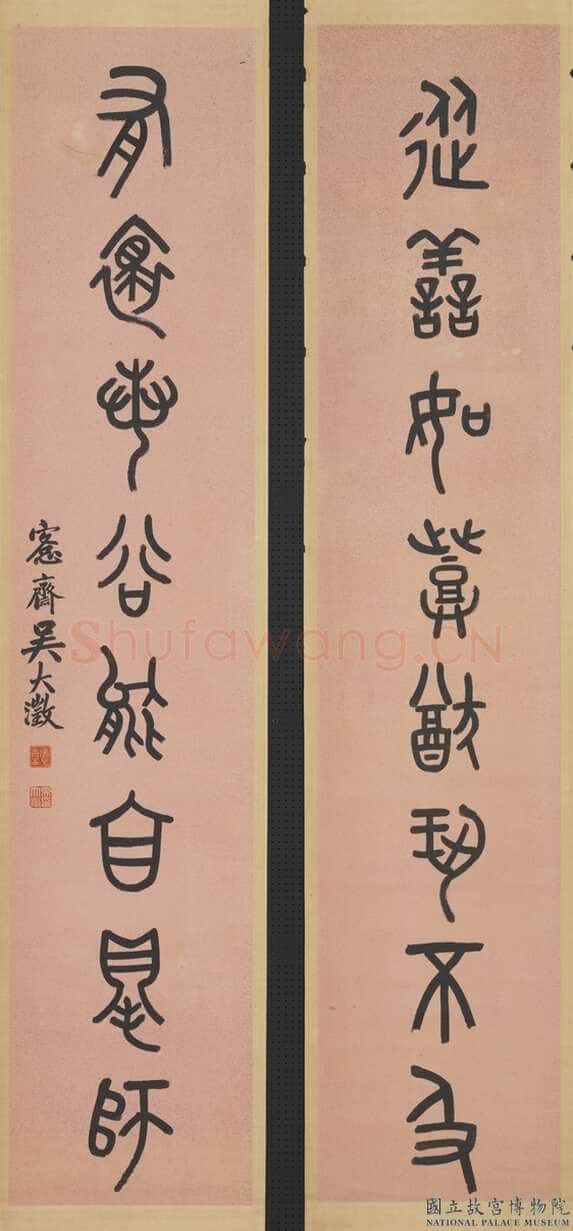 從善如登猷恐不及
有若谷能自得師
愙齋吳大澂
Shufawang.CN
國立故宮博物院
NATIONAL PALACE MUSEUM